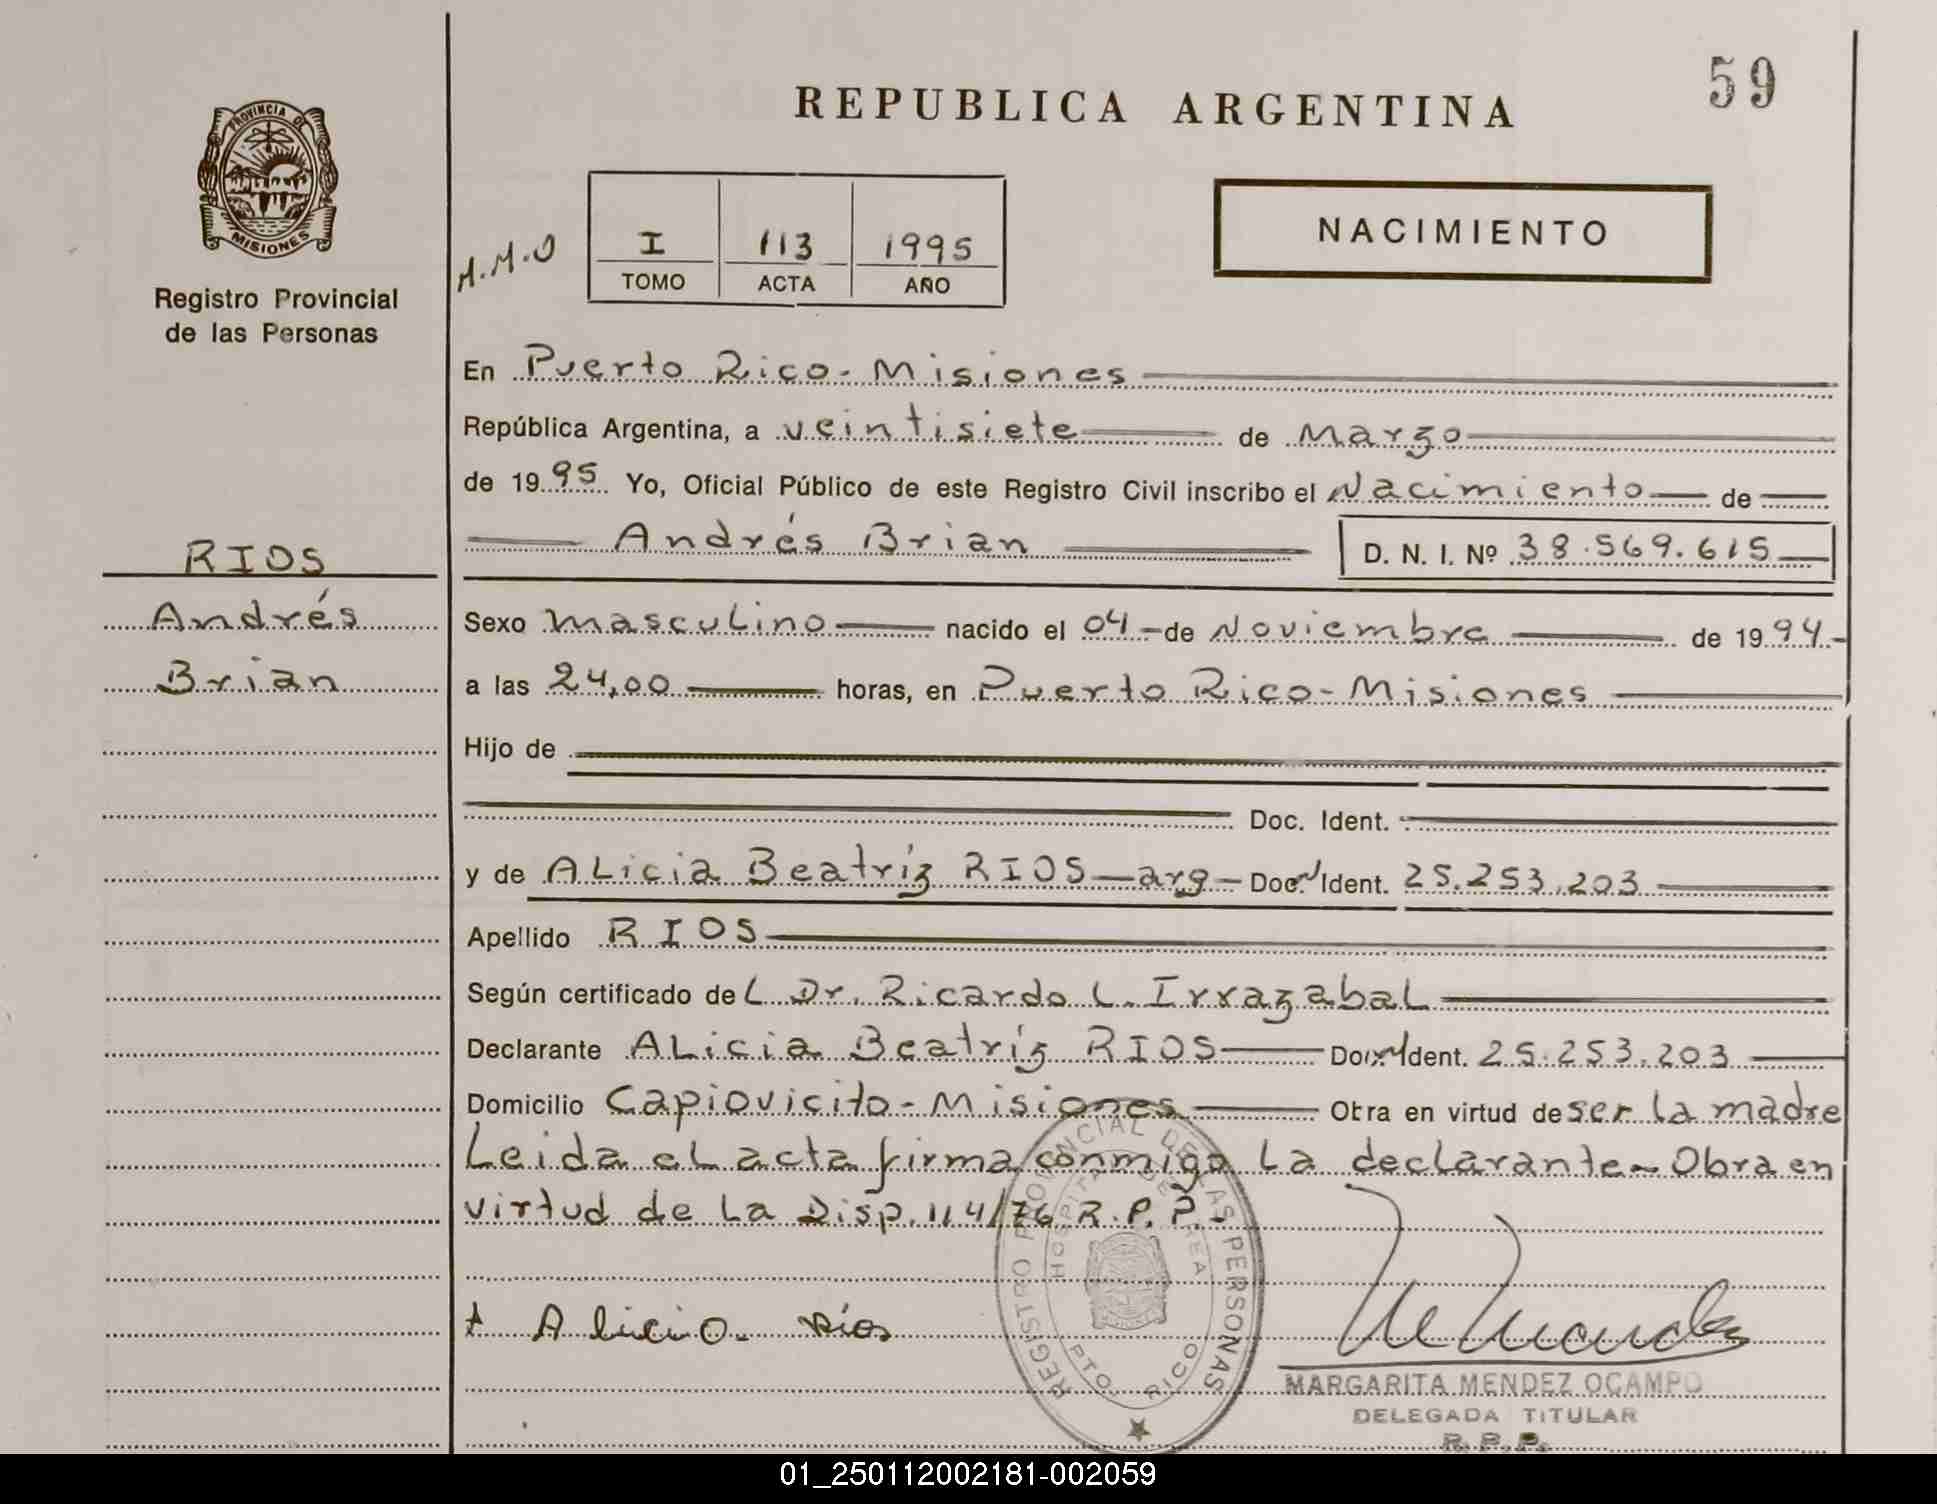 59
REPUBLICA ARGENTINA
PROVINCIA DE
MISIONES
Registro Provincial
de las Personas
I 113 1995
TOMO ACTA AÑO
NACIMIENTO
En Puerto Rico - Misiones
República Argentina, a veintisiete de Marzo
de 1995 Yo, Oficial Público de este Registro Civil inscribo el Nacimiento de
Andrés Brian D. N. I. Nº 38.569.615
RIOS
Andrés
Brian
Sexo masculino nacido el 04 - de Noviembre de 1994 -
a las 24,00 horas, en Puerto Rico - Misiones
Hijo de
Doc. Ident.
y de ALicia Beatríz RIOS - arg - Doc. Ident. 25.253.203
Apellido RIOS
Según certificado del Dr. Ricardo L. Irrazabal
Declarante ALicia Beatríz RIOS Doc. Ident. 25.253.203
Domicilio Capiovicito - Misiones Obra en virtud de ser la madre
Leida el acta firma conmigo la declarante - Obra en
virtud de la Disp. 114/76 R.P.P. -
Alicia Ríos
REGISTRO PROVINCIAL DE LAS PERSONAS
PTO. RICO
MARGARITA MENDEZ OCAMPO
DELEGADA TITULAR
R. P. P.
01_250112002181-002059